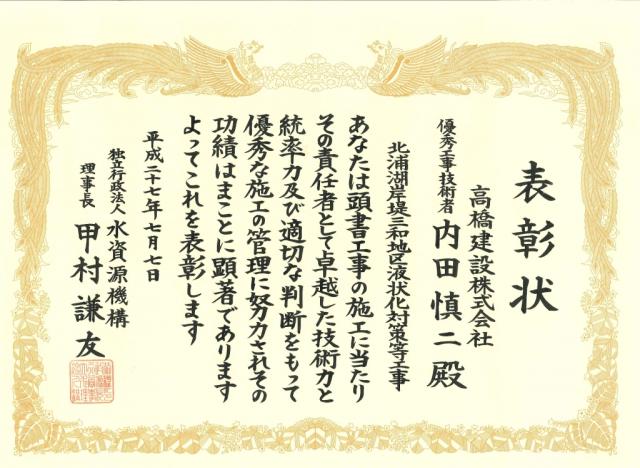 表彰状
高橋建設株式会社
優秀工事技術者 内田慎二殿
北浦湖岸堤三和地区液状化対策等工事
あなたは頭書工事の施工に当たり
その責任者として卓越した技術力と
統率力及び適切な判断をもって
優秀な施工の管理に努力されその
功績はまことに顕著であります
よってこれを表彰します
平成二十七年七月七日
独立行政法人 水資源機構
理事長 甲村謙友